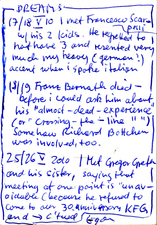 DREAMS
17/18 V 10 I met Francesco Scar-
w/ his 2 kids. He reported to
hat have 3 and resented very
much my heavy (german?)
accent when i spoke italian
18/19 Frans Bernath died —
before i could ask him about
his "almost-dead-experience"
(or "Crossing-the-line"")
Somehow Richard Böttchen
was involved, too.
25/26 V 2010 I Met Gregor
and his Sister, saying that
meeting at one point is "unav-
oidable (because he refused to
come to our 30. anniversary KFG,
and → c'tued